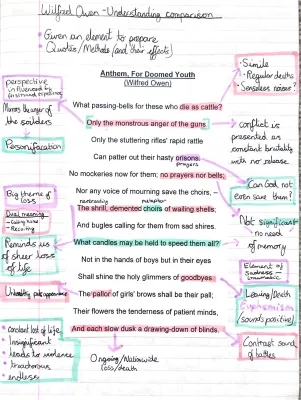 Wilfred Owen - Understanding comparison
• Given an element to prepare
• Quotes/Methods (and their effects)
Anthem, For Doomed Youth
(Wilfred Owen)
• Simile
• Regular deaths
• Senseless noises?
perspective
influenced by
firsthand experience
What passing-bells for these who die as cattle?
Mirrors the anger of
the soldiers
Only the monstrous anger of the guns.
conflict is
presented as
constant brutality
with no release
Personification
Only the stuttering rifles' rapid rattle
Can patter out their hasty orisons.
prayers
No mockeries now for them; no prayers nor bells;
Can God, not
even save them?
Big theme of
loss
Nor any voice of mourning save the choirs, –
metaphor
Dual meaning
The shrill, demented choirs of wailing shells;
Not significant
no need
of memory
And bugles calling for them from sad shires.
Reminds us
of sheer loss
of life
What candles may be held to speed them all?
Element of
sadness
Not in the hands of boys but in their eyes
Shall shine the holy glimmers of goodbyes.
Leaving/Death
Euphemism
(sounds positive)
The pallor of girls' brows shall be their pall;
Their flowers the tenderness of patient minds,
And each slow dusk a drawing-down of blinds.
Contrast sound
of battles
• constant lost of life
• Insignificant
• leads to violence
• endless
Ongoing/Nationwide
loss/death